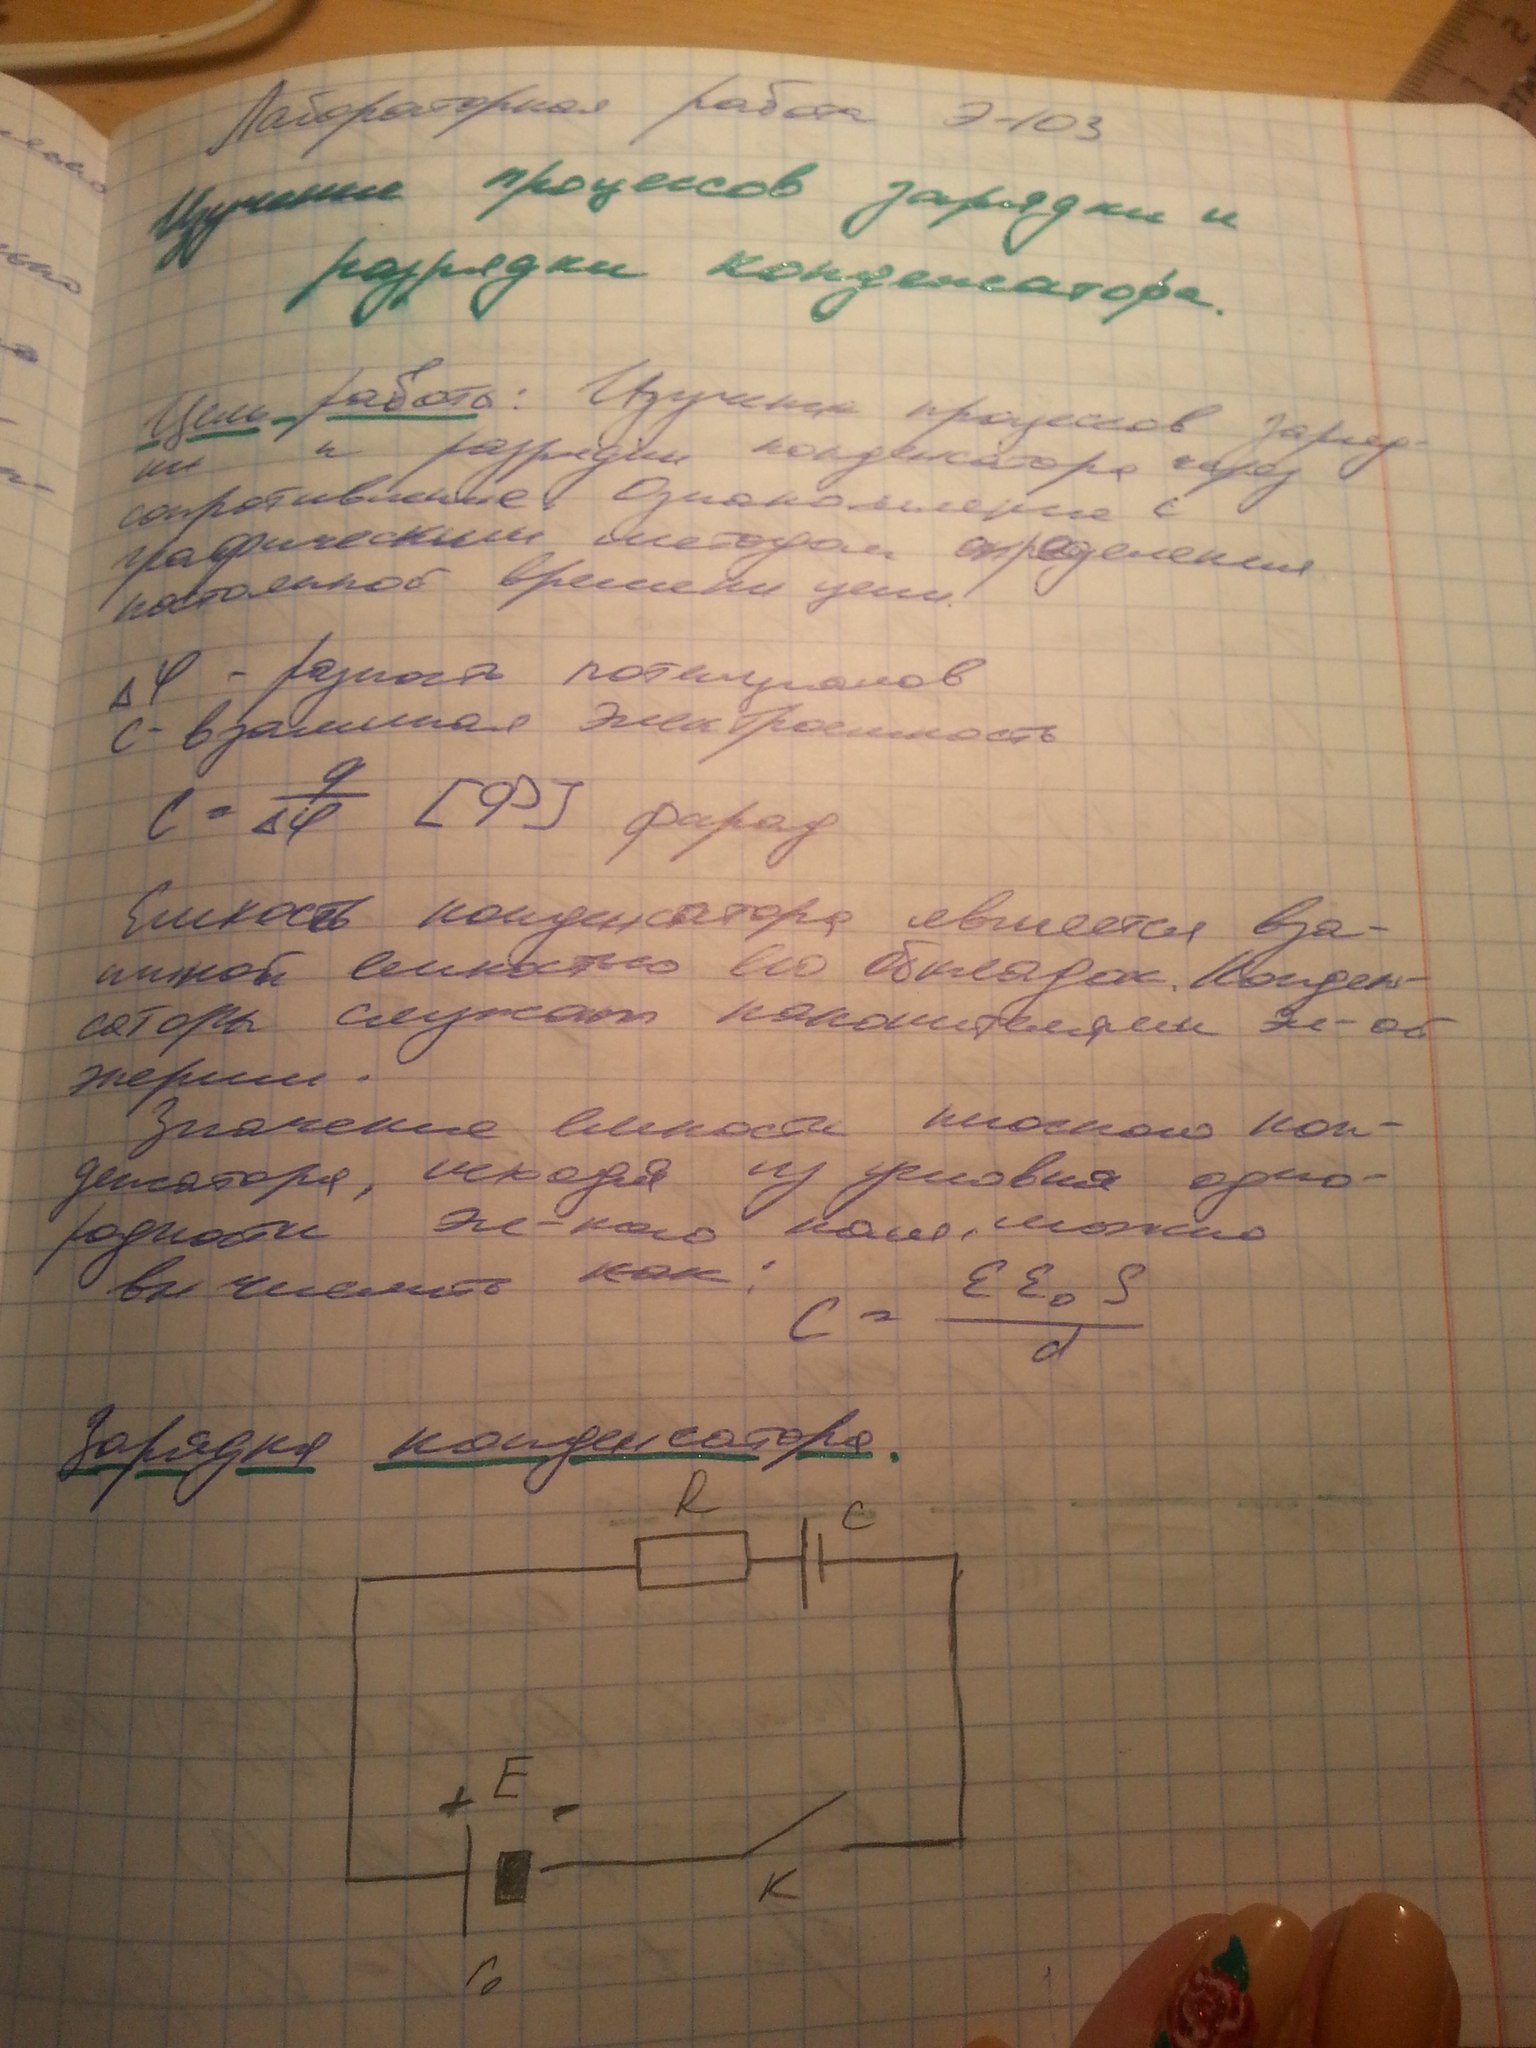 Лабораторная работа Э-103
Изучение процессов зарядки и
разрядки конденсатора.
Цель работы: Изучение процессов заряд-
ки и разрядки конденсатора через
сопротивление. Ознакомление с
графическим методом определения
постоянной времени цепи.
Δφ - разность потенциалов
C - взаимная электроемкость
C = q/Δφ [Ф] фарад
Емкость конденсатора является вза-
имной емкостью его обкладок. Конден-
саторы служат накопителями эл-ой
энергии.
Значение емкости плоского кон-
денсатора, исходя из условия одно-
родности эл-кого поля, можно
вычислить как:
C = εε₀S/d
Зарядка конденсатора.
R C
+ E -
K
r₀